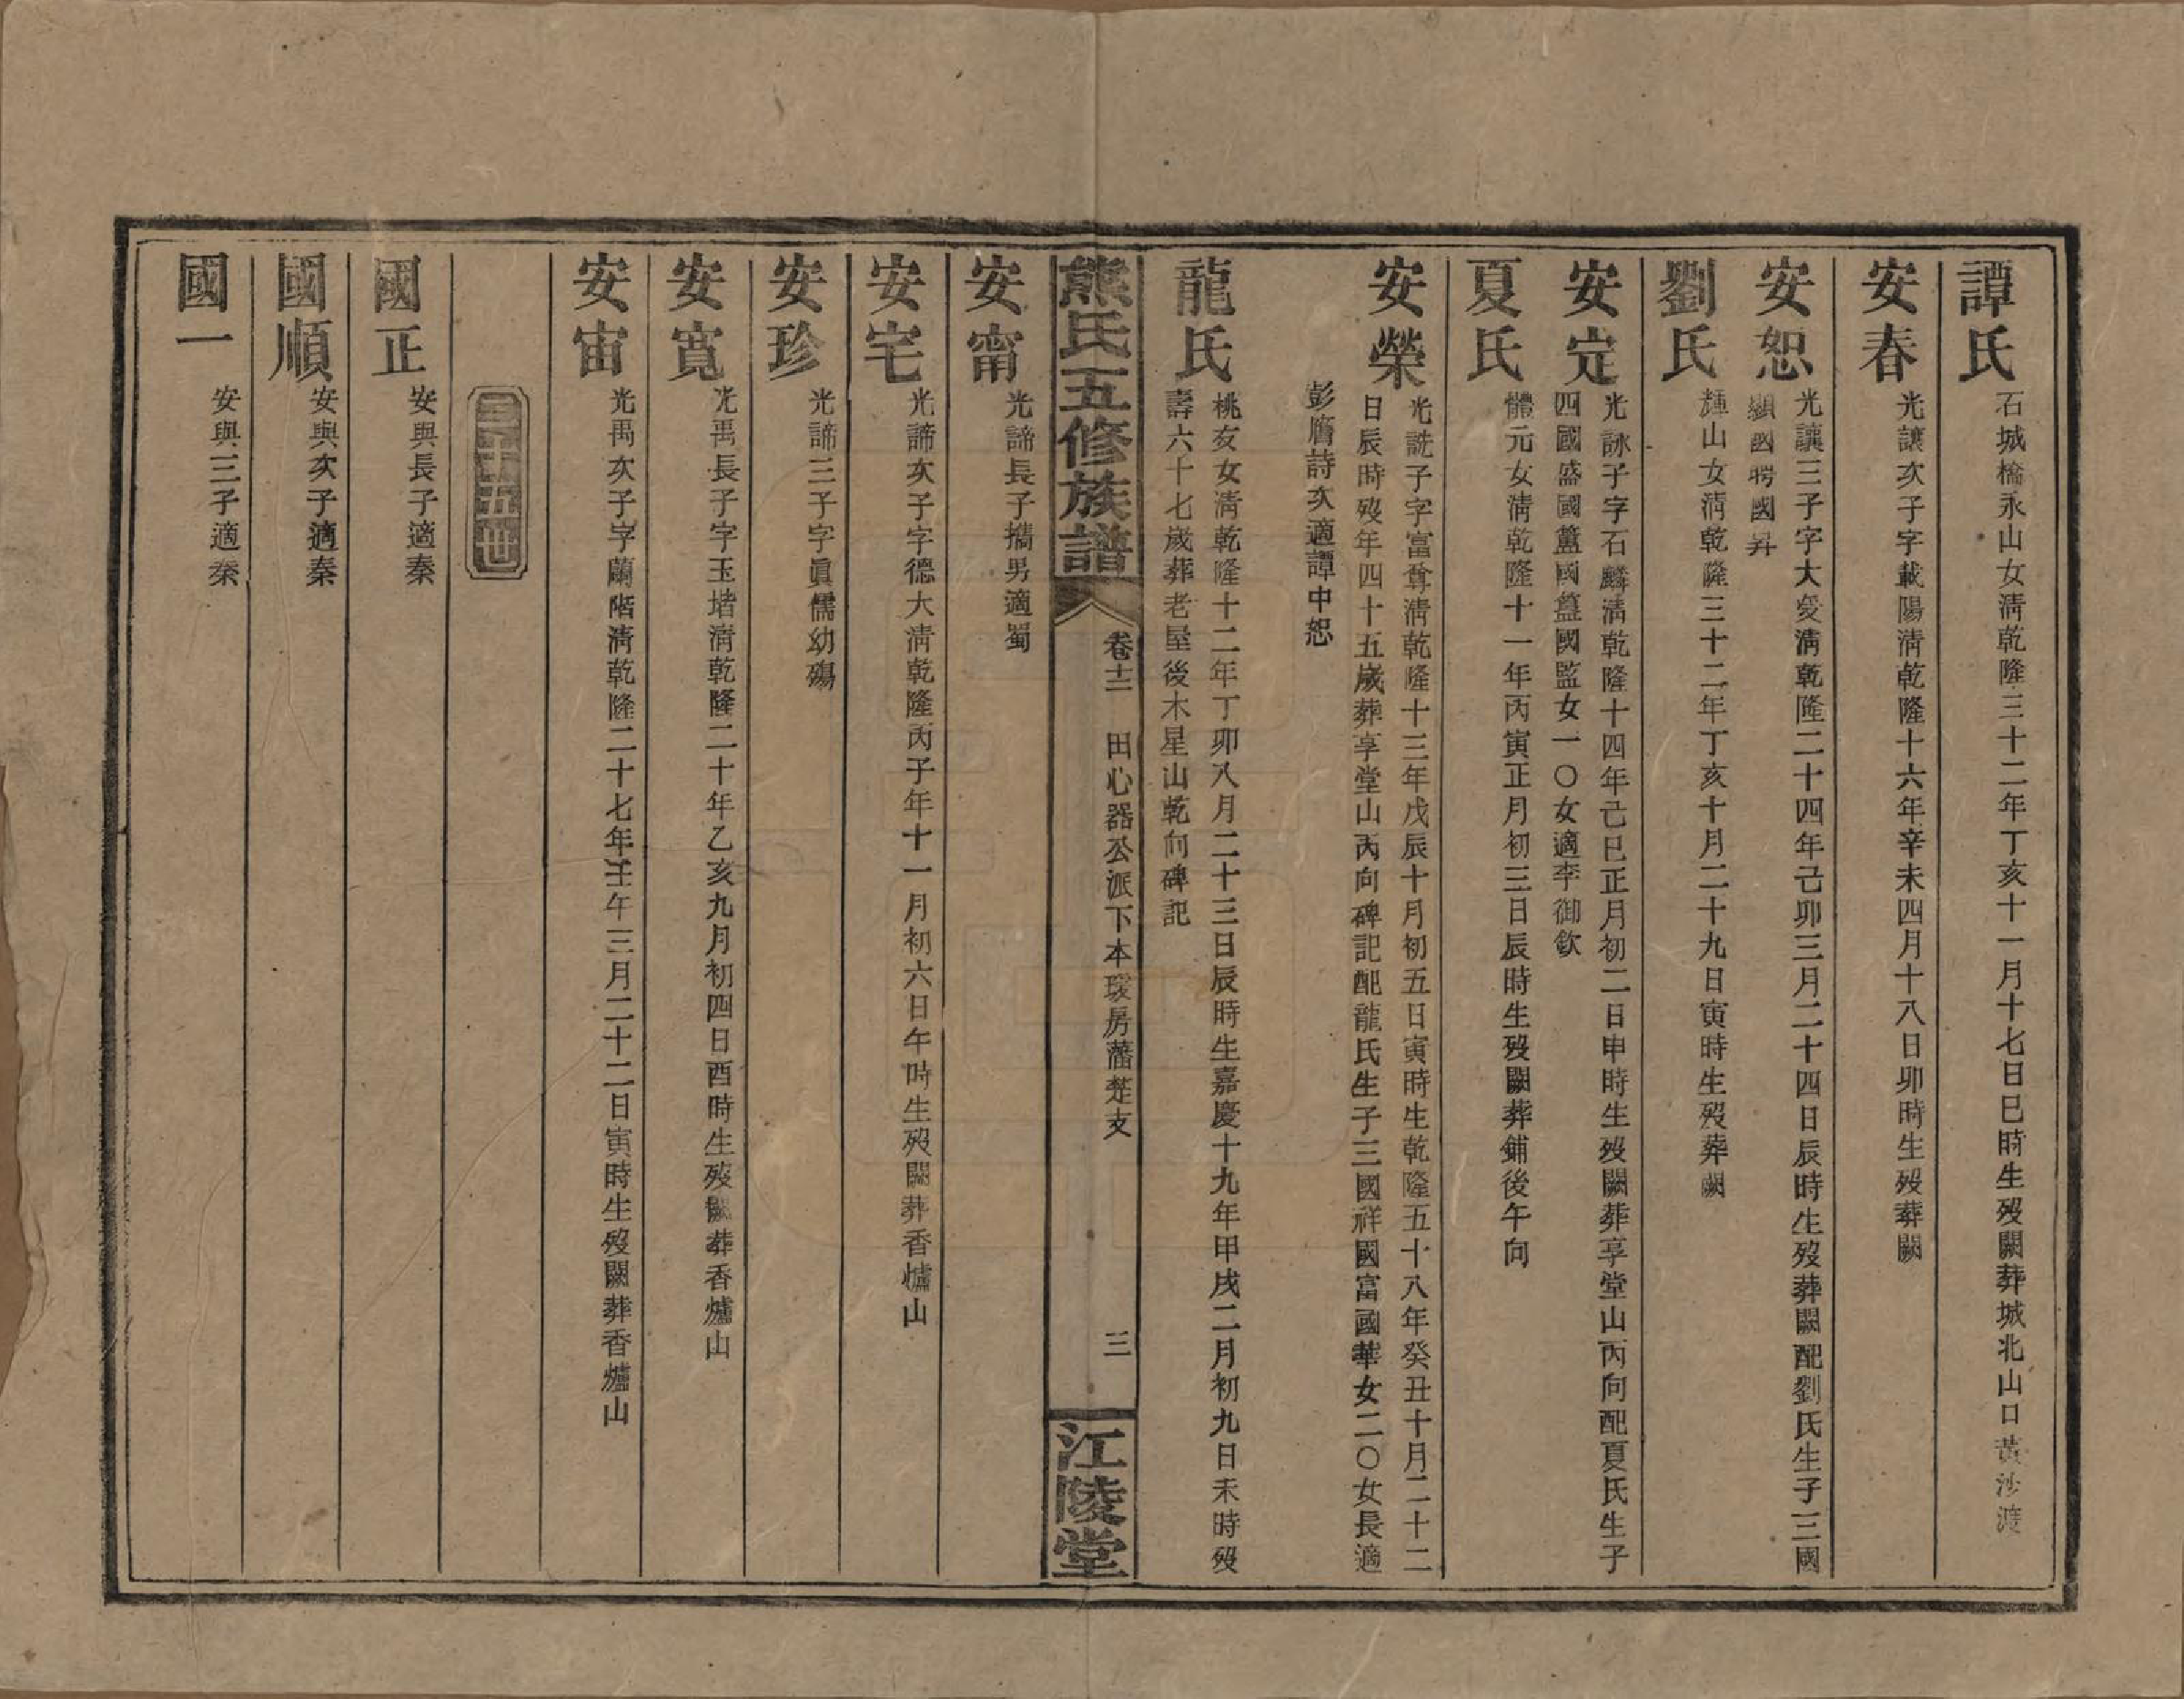 譚氏
石城橋永山女淸乾隆三十二年丁亥十一月十七日巳時生歿闕葬城北山口黃沙渡
安春
光讓次子字載陽淸乾隆十六年辛未四月十八日卯時生歿葬闕
安恕
光讓三子字大爰淸乾隆二十四年己卯三月二十四日辰時生歿葬闕配劉氏生子三國
顯國聘國昇
劉氏
輝山女淸乾隆三十二年丁亥十月二十九日寅時生歿葬闕
安定
光詠子字石麟淸乾隆十四年己巳正月初二日申時生歿闕葬享堂山丙向配夏氏生子
四國盛國簠國簋國監女一〇女適李御欽
夏氏
體元女淸乾隆十一年丙寅正月初三日辰時生歿闕葬鋪後午向
安榮
光詵子字富尊淸乾隆十三年戊辰十月初五日寅時生乾隆五十八年癸丑十月二十二
日辰時歿年四十五歲葬享堂山丙向碑記配龍氏生子三國祥國富國華女二〇女長適
彭膺詩次適譚中恕
龍氏
桃友女淸乾隆十二年丁卯八月二十三日辰時生嘉慶十九年甲戌二月初九日未時歿
壽六十七歲葬老屋後木星山乾向碑記
熊氏五修族譜
卷十二 田心器公派下本瑗房藩楚支 三
江陵堂
安甯
光諦長子攜男適蜀
安宅
光諦次子字德大淸乾隆丙子年十一月初六日午時生歿闕葬香爐山
安珍
光諦三子字眞儒幼殤
安寬
光禹長子字玉堦淸乾隆二十年乙亥九月初四日酉時生歿闕葬香爐山
安宙
光禹次子字蘭階淸乾隆二十七年壬午三月二十二日寅時生歿闕葬香爐山
三十五世
國正
安與長子適秦
國順
安與次子適秦
國一
安與三子適秦